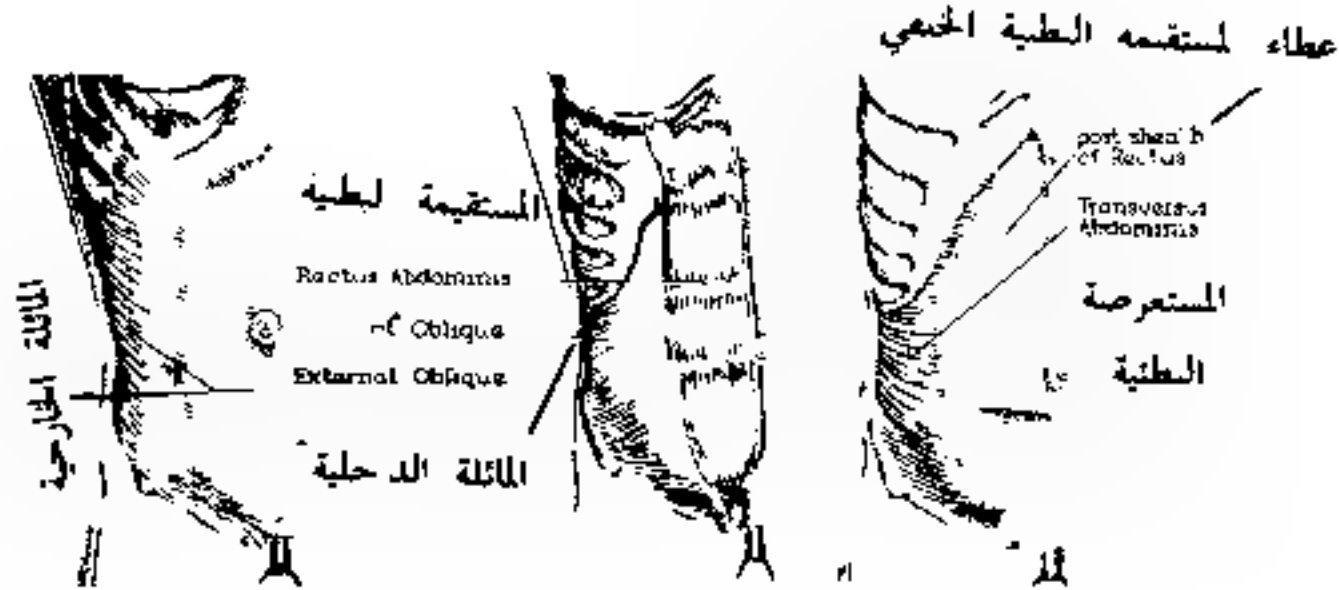 عطاء لمستقيمه البطنية الخلفي
post sheath
of Rectus
Transversus
Abdominis
المستعرصة
البطنية
المستقيمة لبطنية
Rectus Abdominus
Oblique
External Oblique
المائلة الدحلية
المائلة الخارجية